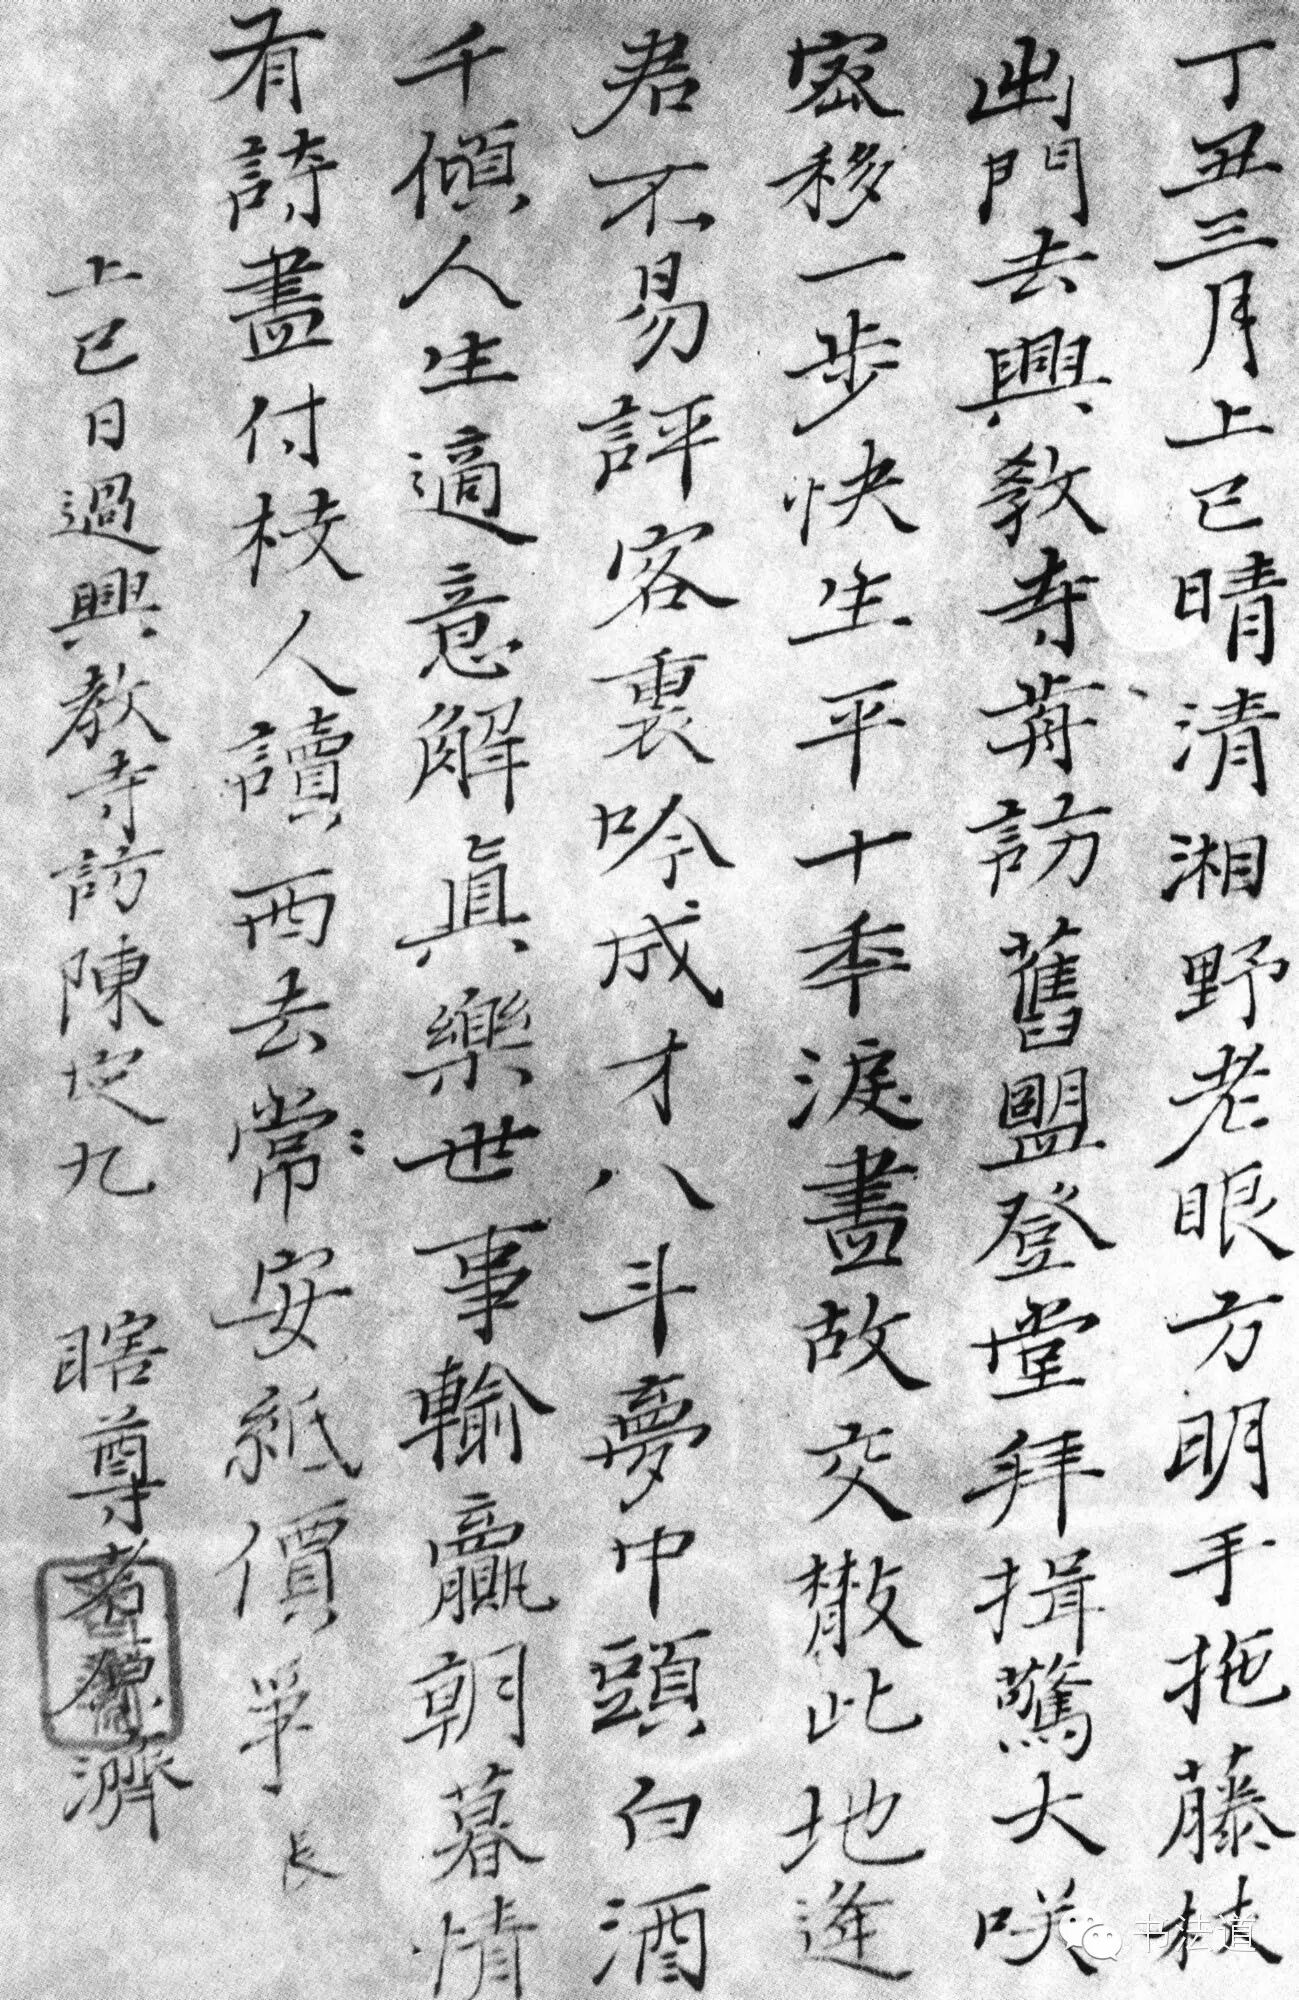 丁丑三月上巳晴清湘野老眼方明手拖藤杖
出門去興教寺前訪舊盟登堂拜揖驚大笑
密移一步快生平十年淚盡故交散此地逢
君不易評客裏吟成才八斗夢中頭白酒
千傾人生適意解真樂世事輸贏朝暮情
有詩盡付枝人讀西去常安紙價爭
長
上巳日過興教寺訪陳定九 瞎尊者原濟
书法道